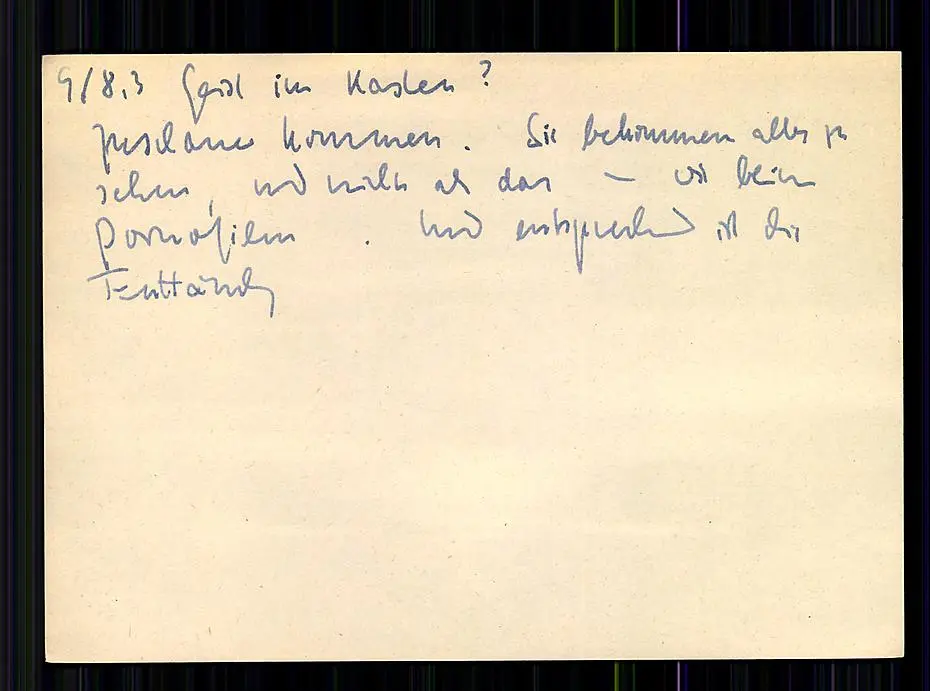 9/8,3 Geist im Kasten?
Zuschauer kommen. Sie bekommen alles zu
sehen, und nichts als das – wie beim
Pornofilm. Und entsprechend ist die
Enttäuschg